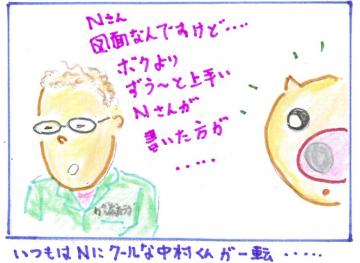 Nさん
図面なんですけど‥‥
ボクより
ずう～と上手い
Nさんが
書いた方が
‥‥‥
いつもはNにクールな中村くんが一転‥‥‥